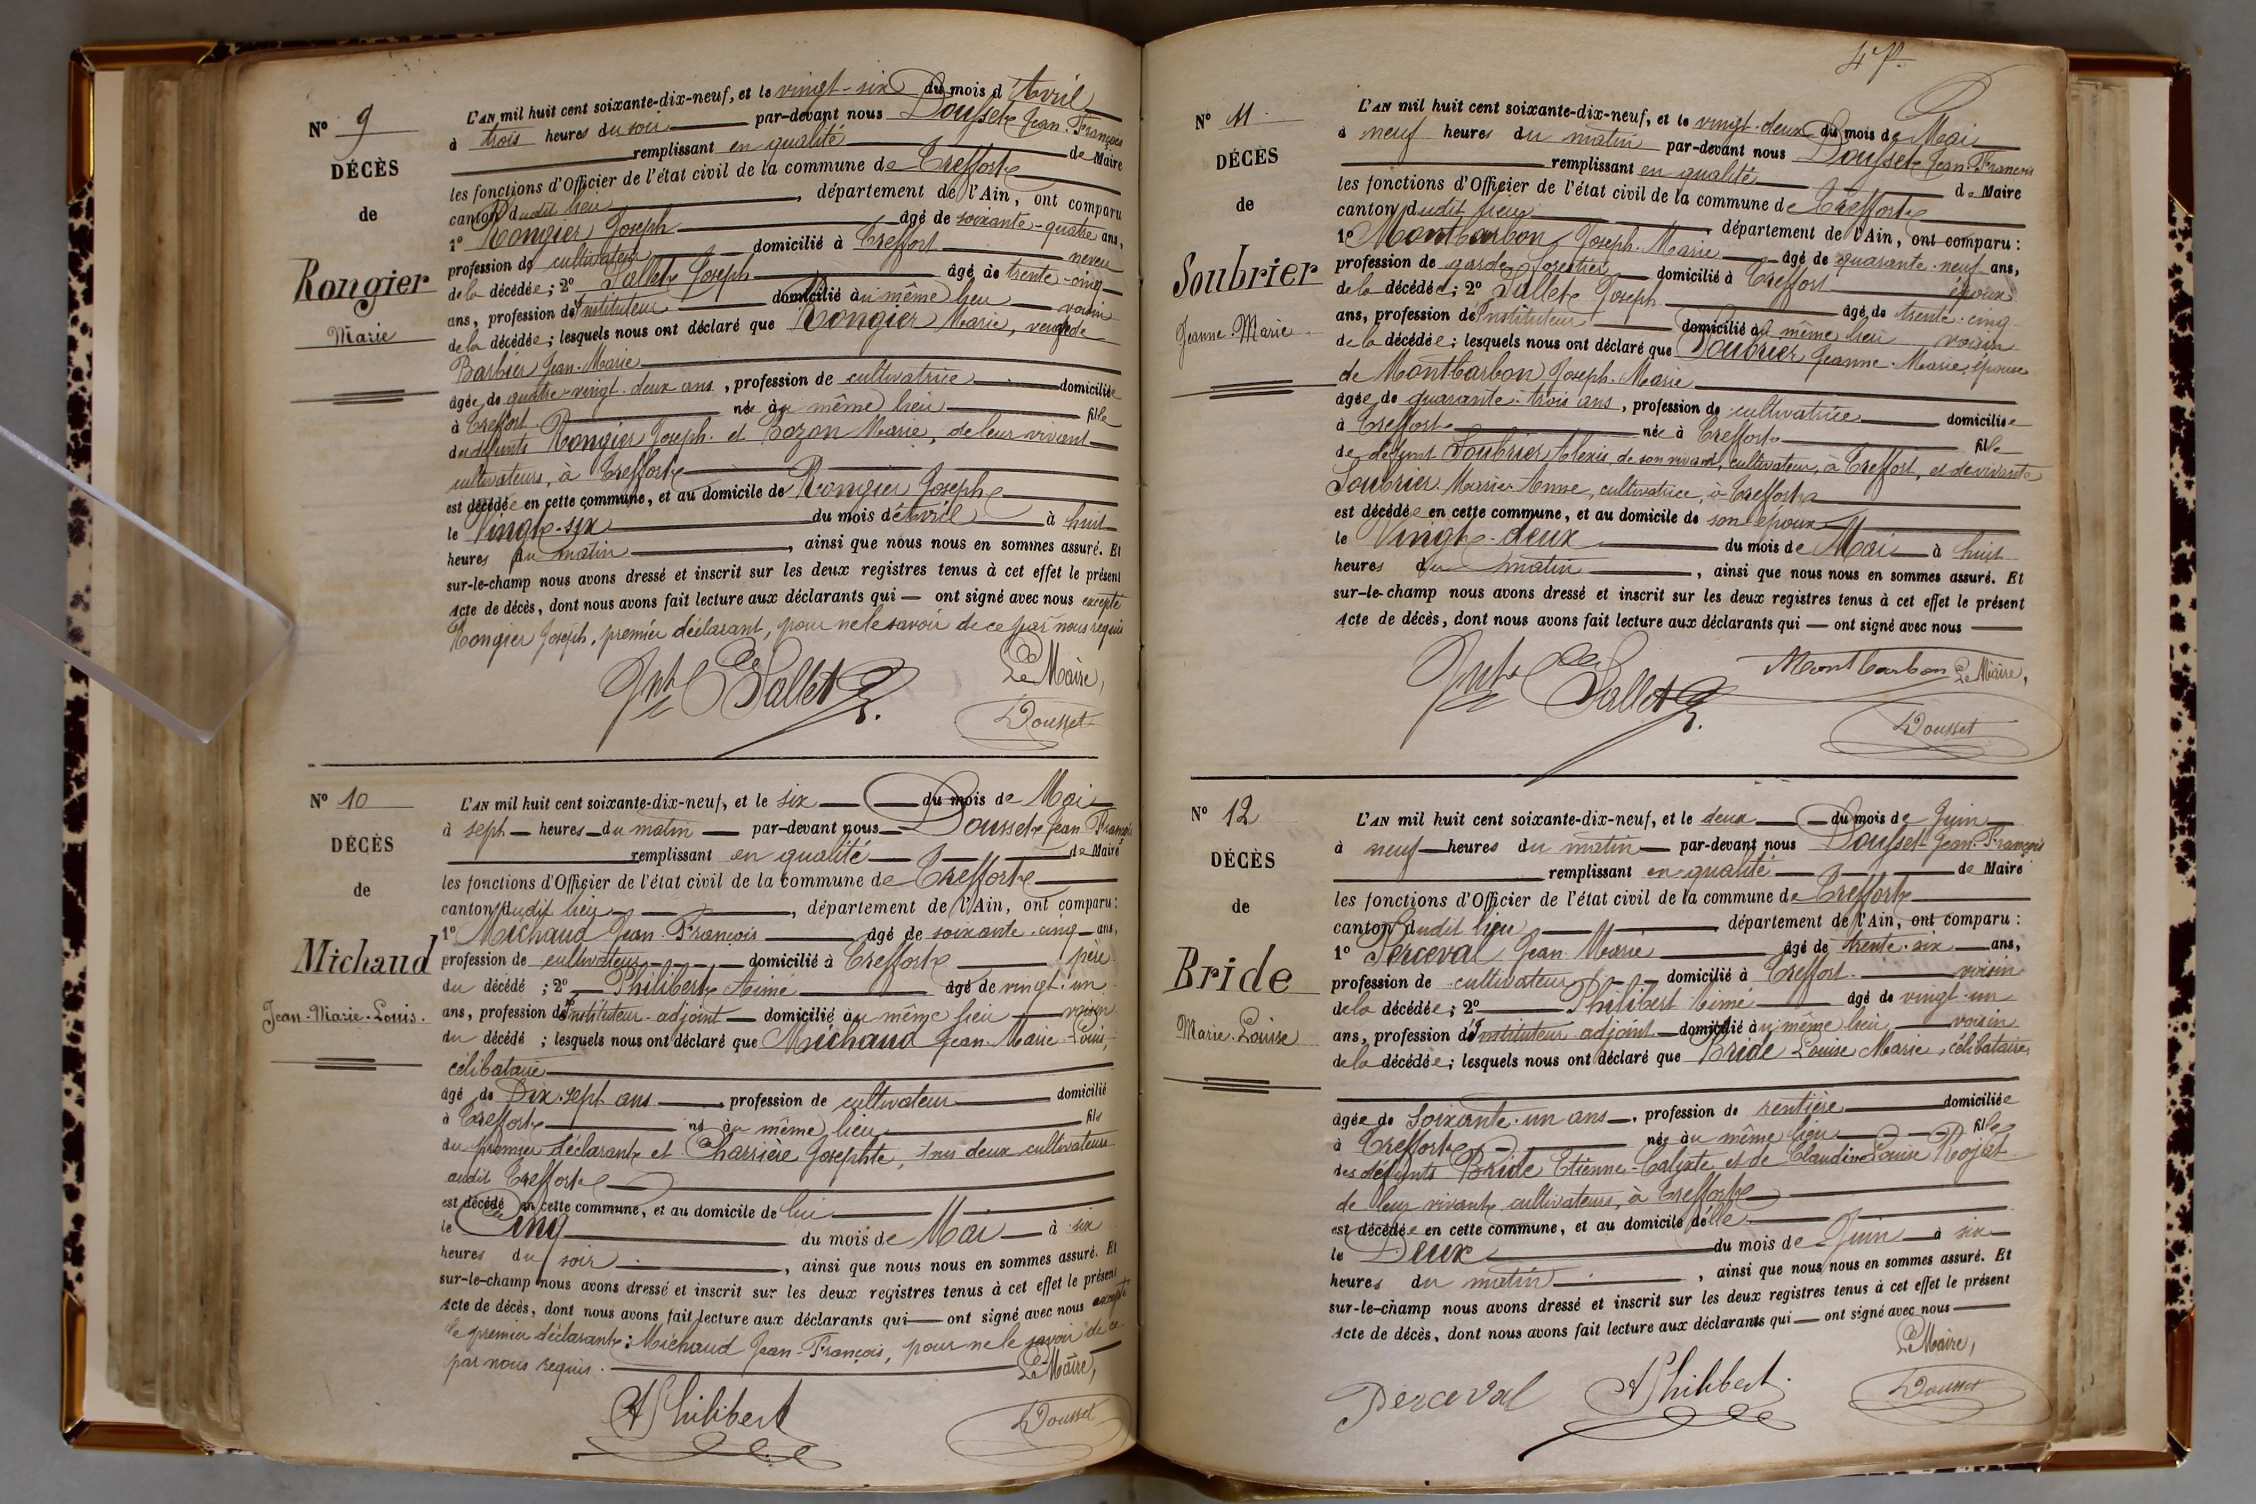 Nº 9
DÉCÈS
de
Rongier
Marie
L'AN mil huit cent soixante-dix-neuf, et le vingt-six du mois d'Avril
à trois heures du soir par-devant nous Dousset Jean-François
remplissant en qualité de Maire
les fonctions d'Officier de l'état civil de la commune de Treffort
canton dudit lieu, département de l'Ain, ont comparu
1º Rongier Joseph âgé de soixante-quatre ans,
profession de cultivateur domicilié à Treffort neveu
de la décédée; 2º Sallet Joseph âgé de trente-cinq
ans, profession d'Instituteur domicilié au même lieu voisin
de la décédée; lesquels nous ont déclaré que Rongier Marie, veuve de
Barbier Jean-Marie
âgée de quatre-vingt-deux ans, profession de cultivatrice domiciliée
à Treffort née au même lieu fille
des défunts Rongier Joseph et Bozon Marie, de leur vivant
cultivateurs, à Treffort
est décédée en cette commune, et au domicile de Rongier Joseph
le Vingt-six du mois d'Avril à huit
heures du matin, ainsi que nous nous en sommes assuré. Et
sur-le-champ nous avons dressé et inscrit sur les deux registres tenus à cet effet le présent
Acte de décès, dont nous avons fait lecture aux déclarants qui — ont signé avec nous excepté
Rongier Joseph, premier déclarant, pour ne le savoir de ce par nous requis
Jph Sallet
Le Maire,
Dousset
Nº 10
DÉCÈS
de
Michaud
Jean-Marie-Louis.
L'AN mil huit cent soixante-dix-neuf, et le six du mois de Mai
à sept heures du matin par-devant nous Dousset Jean-François
remplissant en qualité de Maire
les fonctions d'Officier de l'état civil de la commune de Treffort
canton dudit lieu, département de l'Ain, ont comparu:
1º Michaud Jean-François âgé de soixante-cinq ans,
profession de cultivateur domicilié à Treffort père
du décédé; 2º Philibert Aimé âgé de vingt-un
ans, profession d'Instituteur-adjoint domicilié au même lieu voisin
du décédé; lesquels nous ont déclaré que Michaud Jean-Marie-Louis,
célibataire
âgé de Dix-sept ans profession de cultivateur domicilié
à Treffort né au même lieu fils
du premier déclarant et Charrière Josephte, tous deux cultivateurs
audit Treffort
est décédé en cette commune, et au domicile de lui
le Cinq du mois de Mai à six
heures du soir, ainsi que nous nous en sommes assuré. Et
sur-le-champ nous avons dressé et inscrit sur les deux registres tenus à cet effet le présent
Acte de décès, dont nous avons fait lecture aux déclarants qui — ont signé avec nous excepté
le premier déclarant: Michaud Jean-François, pour ne le savoir de ce
par nous requis.
Le Maire,
A Philibert
Dousset
47
Nº 11
DÉCÈS
de
Soubrier
Jeanne-Marie
L'AN mil huit cent soixante-dix-neuf, et le vingt-deux du mois de Mai
à neuf heures du matin par-devant nous Dousset Jean-François
remplissant en qualité de Maire
les fonctions d'Officier de l'état civil de la commune de Treffort
canton dudit lieu département de l'Ain, ont comparu:
1º Montbarbon Joseph-Marie âgé de quarante-neuf ans,
profession de garde forestier domicilié à Treffort époux
de la décédée; 2º Sallet Joseph âgé de trente-cinq
ans, profession d'Instituteur domicilié au même lieu voisin
de la décédée; lesquels nous ont déclaré que Soubrier Jeanne-Marie, épouse
de Montbarbon Joseph-Marie
âgée de quarante-trois ans, profession de cultivatrice domiciliée
à Treffort née à Treffort fille
de défunt Soubrier Alexis, de son vivant, cultivateur, à Treffort, et de vivante
Soubrier Marie-Anne, cultivatrice, à Treffort
est décédée en cette commune, et au domicile de son époux
le Vingt-deux du mois de Mai à huit
heures du matin, ainsi que nous nous en sommes assuré. Et
sur-le-champ nous avons dressé et inscrit sur les deux registres tenus à cet effet le présent
Acte de décès, dont nous avons fait lecture aux déclarants qui — ont signé avec nous
Jph Sallet
Montbarbon
Le Maire,
Dousset
Nº 12
DÉCÈS
de
Bride
Marie-Louise
L'AN mil huit cent soixante-dix-neuf, et le deux du mois de Juin
à neuf heures du matin par-devant nous Dousset Jean-François
remplissant en qualité de Maire
les fonctions d'Officier de l'état civil de la commune de Treffort
canton dudit lieu département de l'Ain, ont comparu:
1º Perceval Jean-Marie âgé de trente-six ans,
profession de cultivateur domicilié à Treffort voisin
de la décédée; 2º Philibert Aimé âgé de vingt-un
ans, profession d'Instituteur adjoint domicilié au même lieu voisin
de la décédée; lesquels nous ont déclaré que Bride Louise Marie, célibataire,
âgée de soixante-un ans, profession de rentière domiciliée
à Treffort née au même lieu fille
des défunts Bride Etienne-Calixte et de Claudine Louise Rojat
de leur vivant, cultivateurs, à Treffort
est décédée en cette commune, et au domicile d'elle
le Deux du mois de Juin à six
heures du matin, ainsi que nous nous en sommes assuré. Et
sur-le-champ nous avons dressé et inscrit sur les deux registres tenus à cet effet le présent
Acte de décès, dont nous avons fait lecture aux déclarants qui — ont signé avec nous
Le Maire,
Perceval
A Philibert
Dousset